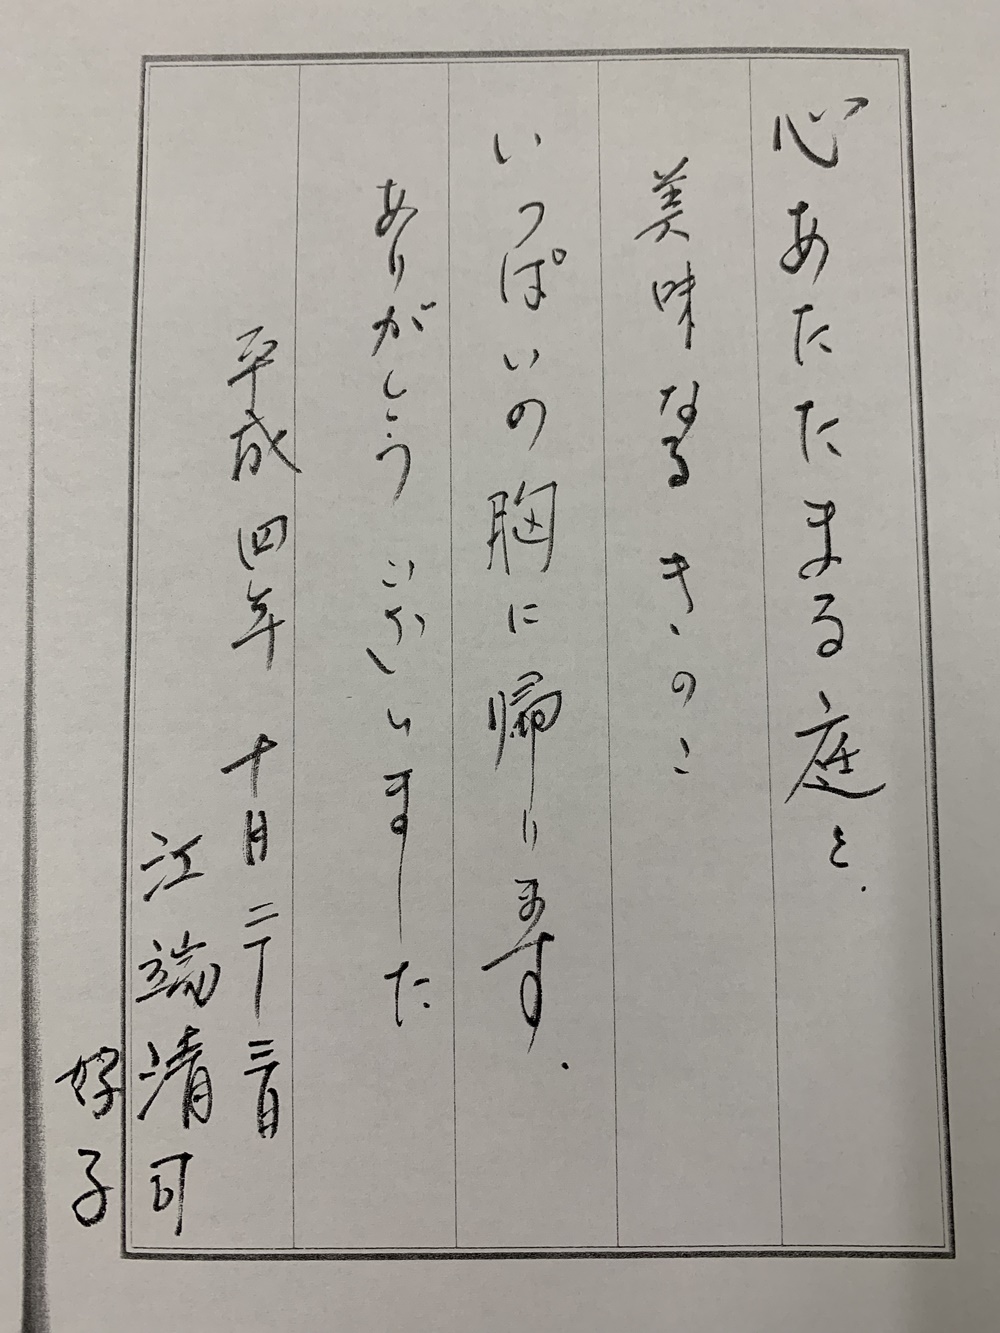 心あたたまる庭と.
美味なるきのこ
いっぱいの胸に帰ります.
ありがとうございました
平成四年十月二十三日
江端清司
好子